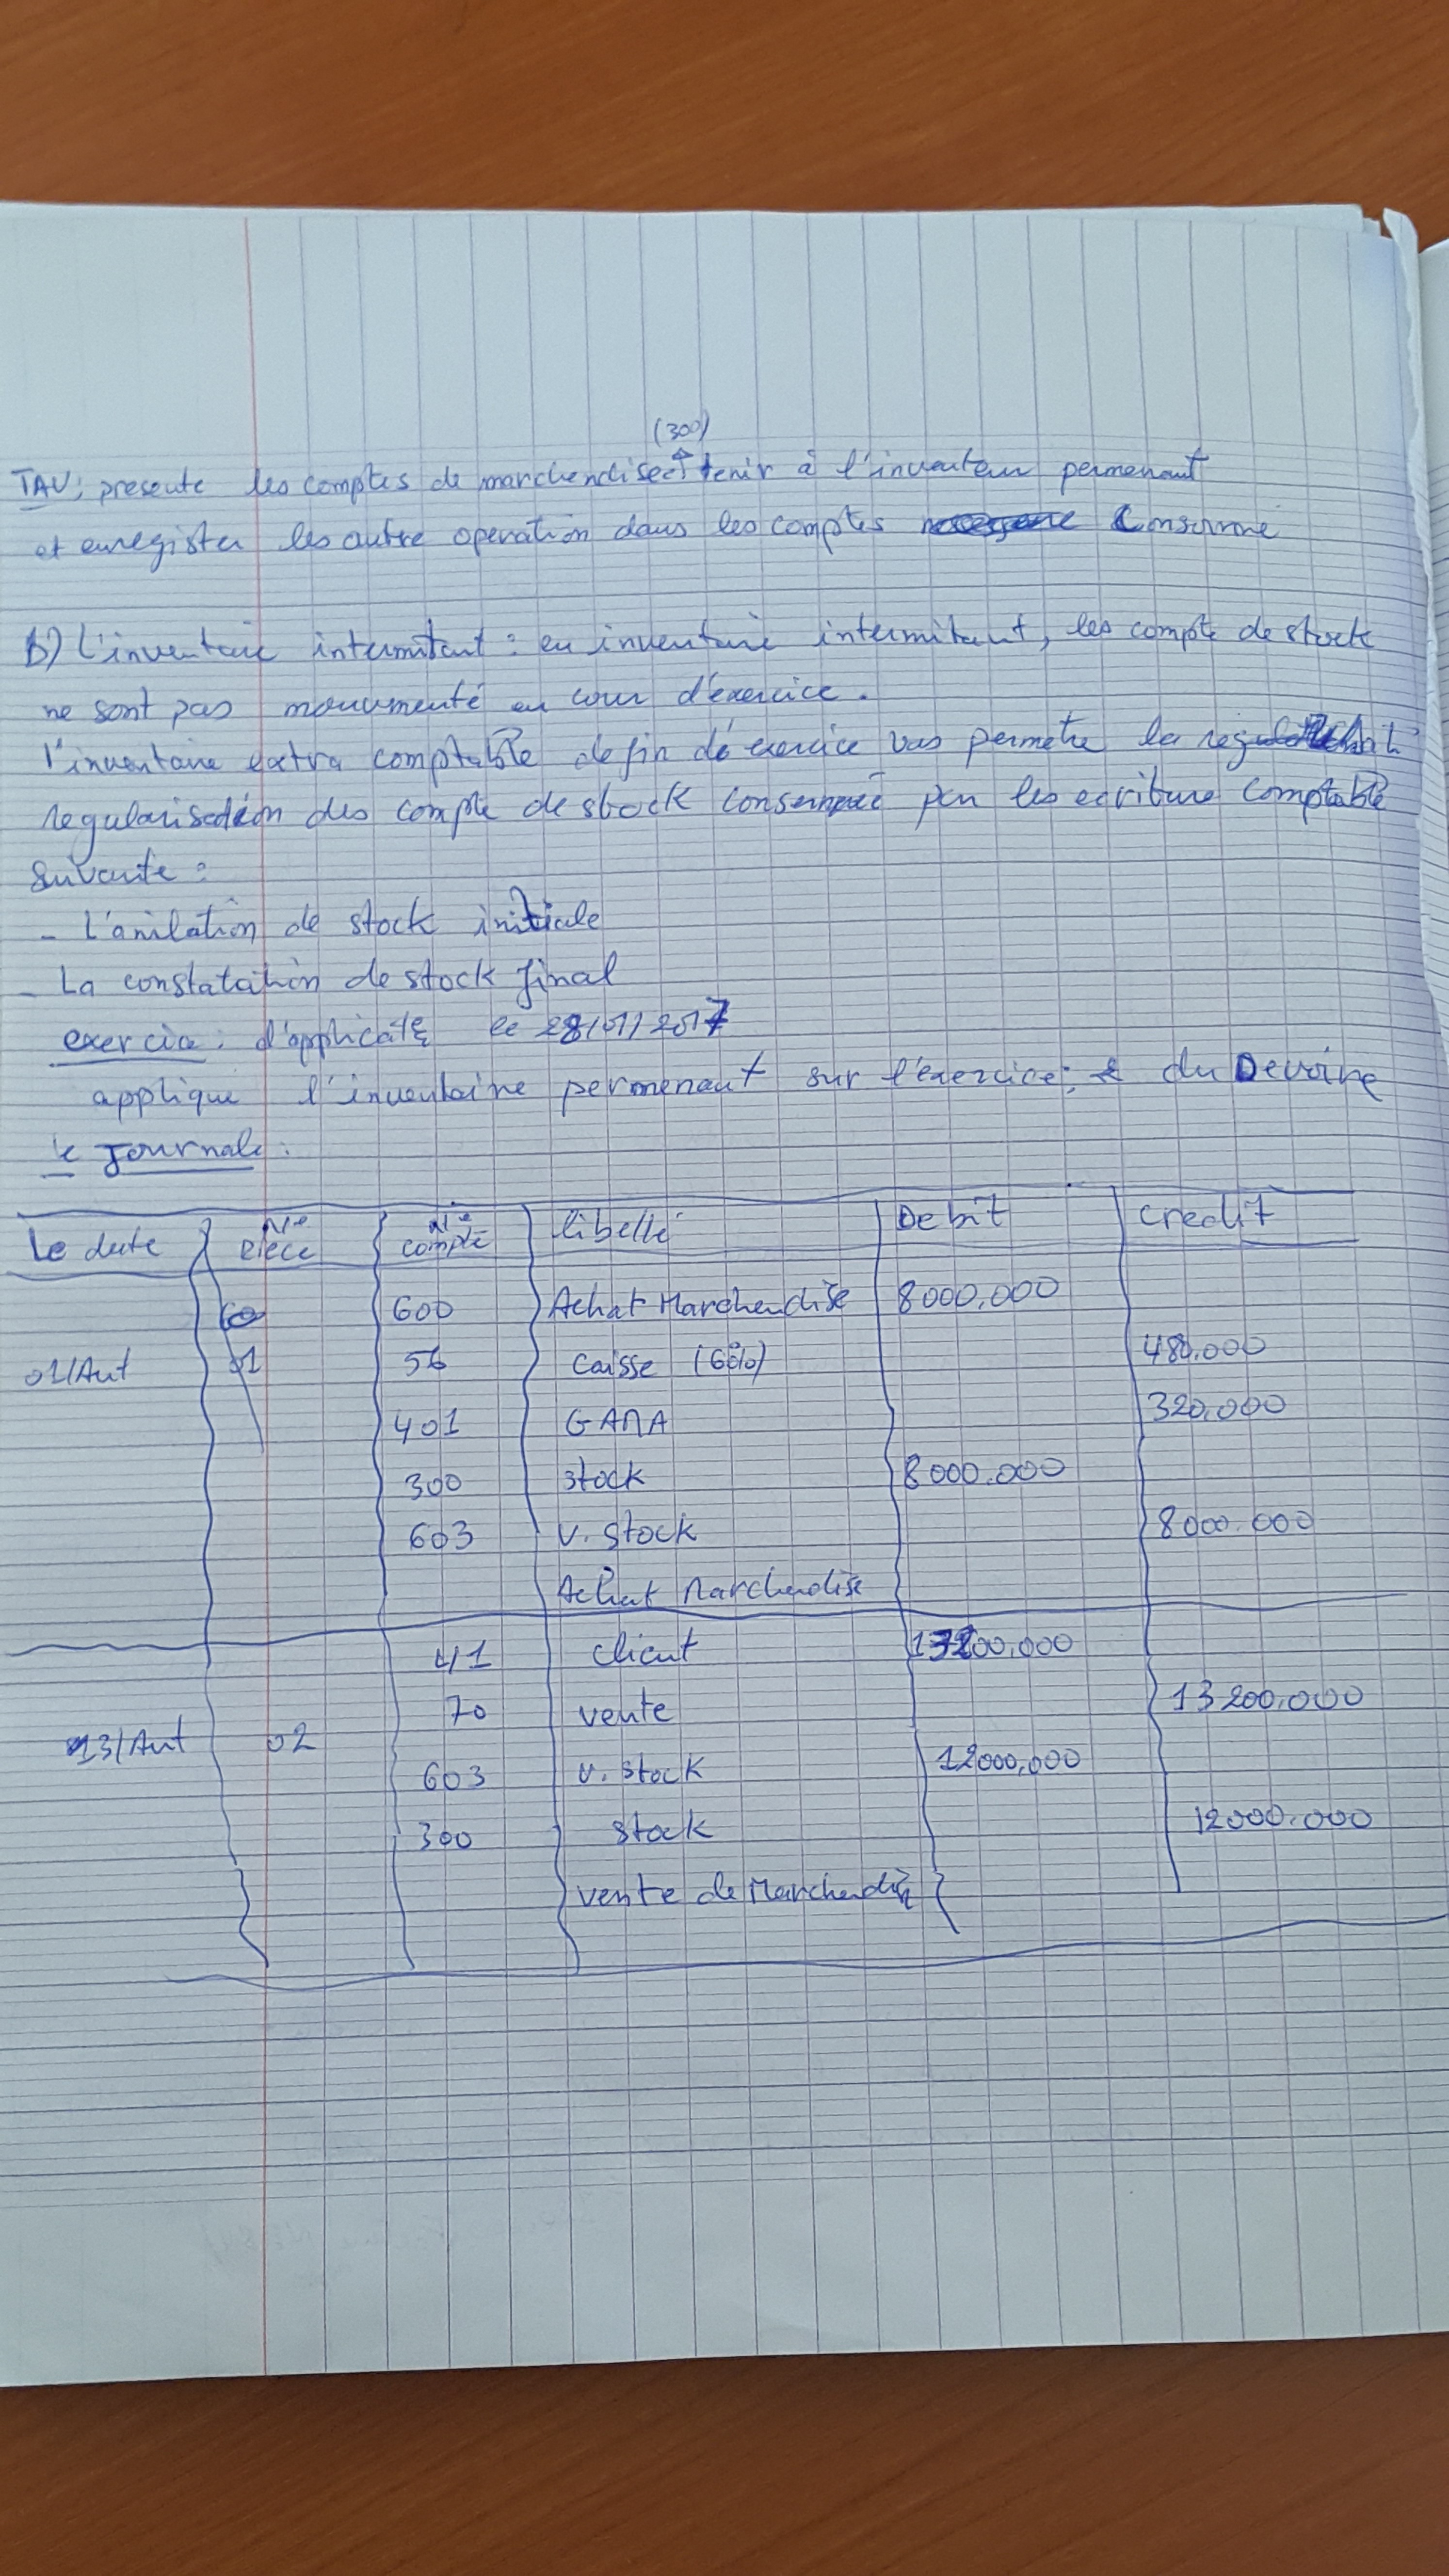 (300)
TAV: presente les comptes de marchendisees tenir à l'inventeur permenant
et enregister les autre operation dans les comptes Conserne
B) L'inventaire intermitant : en inventaire intermitant, les compte de stock
ne sont pas mouvmenté en cour d'exercice.
l'inventaire extra comptable de fin de exercice vas permetre la
regularisation des compte de stock conserneé par les ecriture comptable
suivante :
- L'anilation de stock initiale
- La constatation de stock final
exercice : d'applicat le 28/01/2017
applique l'inventaire permenant sur l'exercice du Devoire
le Journale :
Le date N° Piece N° compte libelle Debit Credit
600 Achat Marchendise 8000.000
01/Aut 01 56 Caisse (60%) 480.000
401 GANA 320.000
300 stock 8000.000
603 v. stock 8000.000
Achat Marchendise
41 client 13200.000
70 vente 13200.000
13/Aut 02
603 v. stock 12000.000
300 stock 12000.000
vente de Marchendise